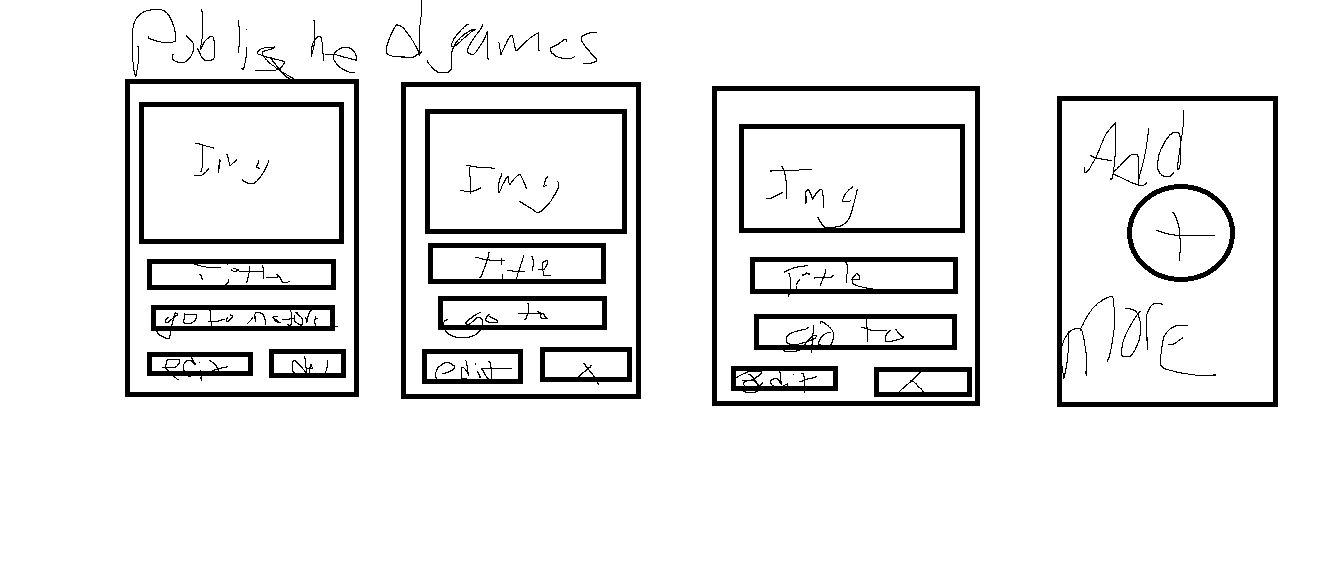 Published games
Img
Title
go to
edit
Img
Title
go to
edit
X
Img
Title
go to
edit
X
Add
+
More